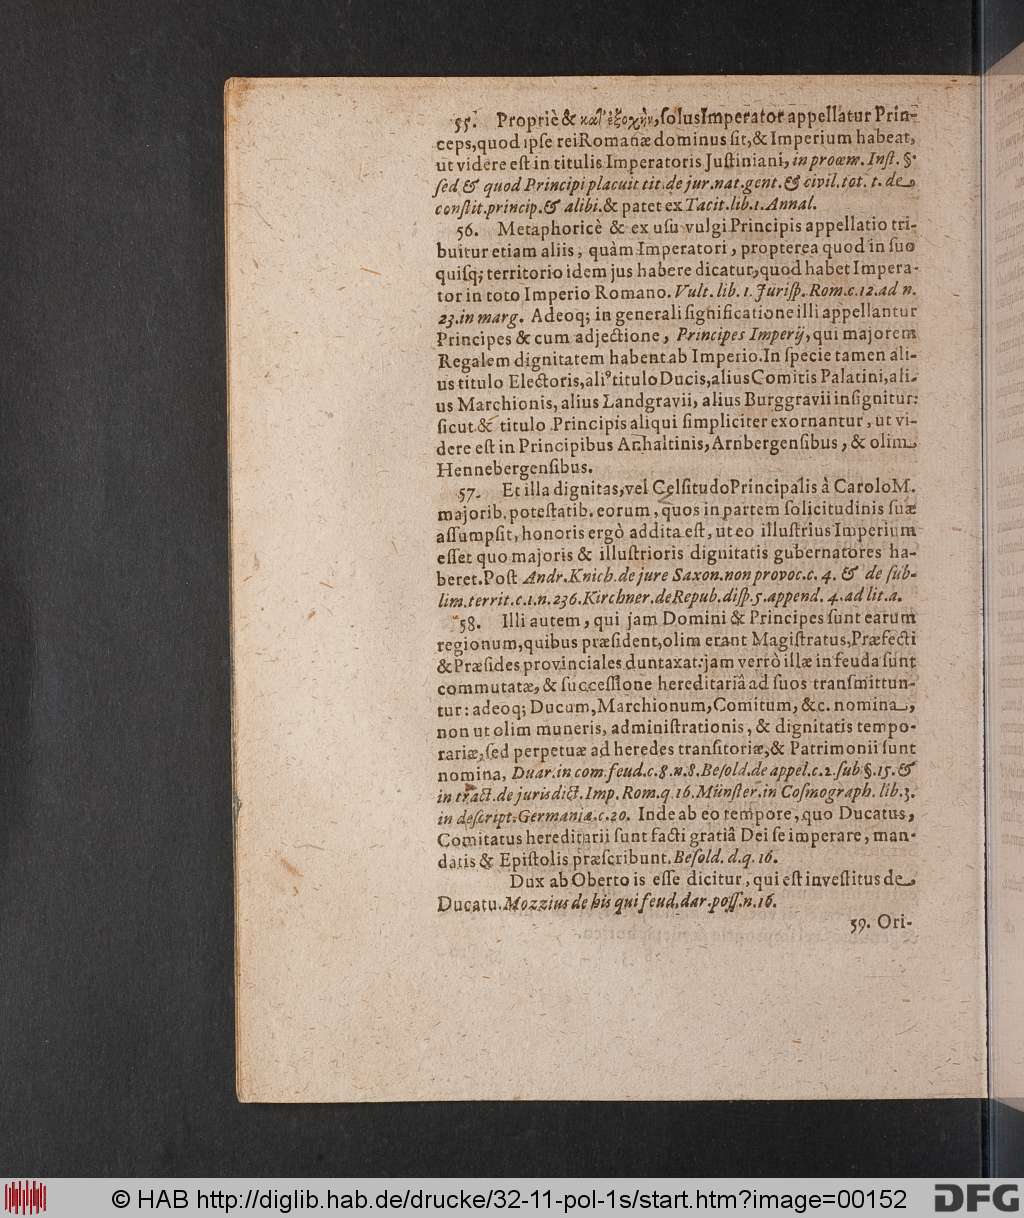 55. Propriè & κατ' ἐξοχὴν, ſolus Imperator appellatur Prin-
ceps, quod ipſe rei Romanæ dominus ſit, & Imperium habeat,
ut videre eſt in titulis Imperatoris Juſtiniani, in proœm. Inſt. §.
ſed & quod Principi placuit tit. de jur. nat. gent. & civil. tot. t. de
conſtit. princip. & alibi. & patet ex Tacit. lib. 1. Annal.
56. Metaphoricè & ex uſu vulgi Principis appellatio tri-
buitur etiam aliis, quàm Imperatori, propterea quod in ſuo
quiſq; territorio idem jus habere dicatur, quod habet Impera-
tor in toto Imperio Romano. Vult. lib. 1. Juriſp. Rom. c. 12. ad n.
23. in marg. Adeoq; in generali ſignificatione illi appellantur
Principes & cum adjectione, Principes Imperij, qui majorem
Regalem dignitatem habent ab Imperio. In ſpecie tamen ali-
us titulo Electoris, aliꝰ titulo Ducis, alius Comitis Palatini, ali-
us Marchionis, alius Landgravii, alius Burggravii inſignitur:
ſicut & titulo Principis aliqui ſimpliciter exornantur, ut vi-
dere eſt in Principibus Anhaltinis, Arnbergenſibus, & olim
Hennebergenſibus.
57. Et illa dignitas, vel Celſitudo Principalis à Carolo M.
majorib. poteſtatib. eorum, quos in partem ſolicitudinis ſuæ
aſſumpſit, honoris ergò addita eſt, ut eo illuſtrius Imperium
eſſet quo majoris & illuſtrioris dignitatis gubernatores ha-
beret. Poſt Andr. Knich. de jure Saxon. non provoc. c. 4. & de ſub-
lim. territ. c. 1. n. 236. Kirchner. de Repub. diſp. 5. append. 4. ad lit. a.
58. Illi autem, qui jam Domini & Principes ſunt earum
regionum, quibus præſident, olim erant Magiſtratus, Præfecti
& Præſides provinciales duntaxat: jam verrò illæ in feuda ſunt
commutatæ, & ſucceſſione hereditariâ ad ſuos tranſmittun-
tur: adeoq; Ducum, Marchionum, Comitum, &c. nomina,
non ut olim muneris, adminiſtrationis, & dignitatis tempo-
rariæ, ſed perpetuæ ad heredes tranſitoriæ, & Patrimonii ſunt
nomina, Duar. in com. feud. c. 8. n. 8. Beſold. de appel. c. 2. ſub §. 15. &
in tract. de jurisdict. Imp. Rom. q. 16. Münſter. in Coſmograph. lib. 3.
in deſcript. Germaniæ. c. 20. Inde ab eo tempore, quo Ducatus,
Comitatus hereditarii ſunt facti gratiâ Dei ſe imperare, man-
datis & Epiſtolis præſcribunt. Beſold. d. q. 16.
Dux ab Oberto is eſſe dicitur, qui eſt inveſtitus de
Ducatu. Mozzius de his qui feud. dar. poſſ. n. 16.
59. Ori-
© HAB http://diglib.hab.de/drucke/32-11-pol-1s/start.htm?image=00152
DFG